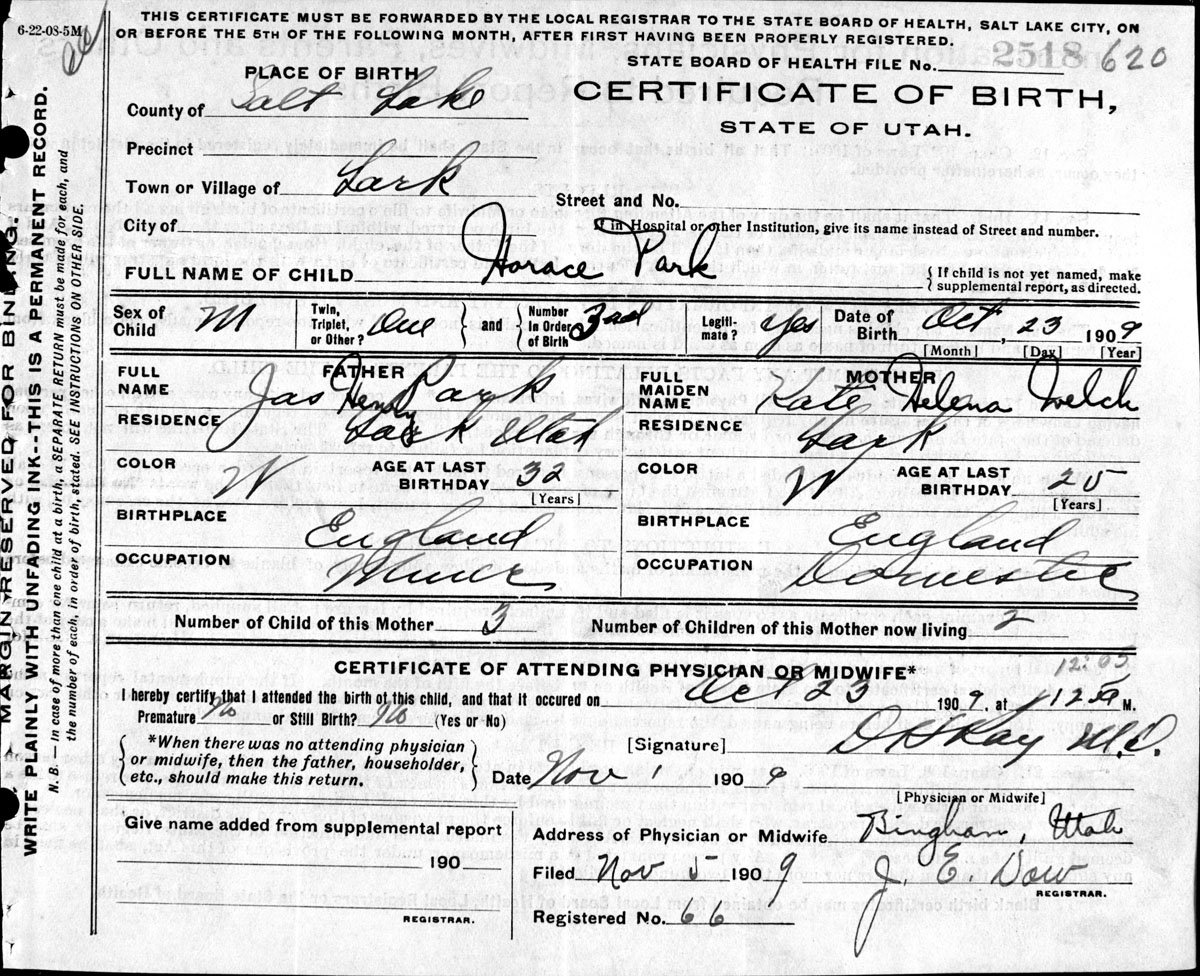 THIS CERTIFICATE MUST BE FORWARDED BY THE LOCAL REGISTRAR TO THE STATE BOARD OF HEALTH, SALT LAKE CITY, ON
6-22-08-5M
OR BEFORE THE 5TH OF THE FOLLOWING MONTH, AFTER FIRST HAVING BEEN PROPERLY REGISTERED.
STATE BOARD OF HEALTH FILE No. 2518 620
PLACE OF BIRTH
CERTIFICATE OF BIRTH,
County of Salt Lake
STATE OF UTAH.
Precinct
Town or Village of Lark
Street and No.
City of
If in Hospital or other Institution, give its name instead of Street and number.
FULL NAME OF CHILD Horace Park
If child is not yet named, make supplemental report, as directed.
Sex of Child M
Twin, Triplet, or Other? One
and
Number in Order of Birth 3rd
Legitimate? Yes
Date of Birth Oct, 23 1909
[Month] [Day] [Year]
FATHER
FULL NAME Jas Henry Park
RESIDENCE Lark Utah
COLOR W
AGE AT LAST BIRTHDAY 32
[Years]
BIRTHPLACE England
OCCUPATION Miner
MOTHER
FULL MAIDEN NAME Kate Helena Welch
RESIDENCE Lark
COLOR W
AGE AT LAST BIRTHDAY 25
[Years]
BIRTHPLACE England
OCCUPATION Domestic
Number of Child of this Mother 3
Number of Children of this Mother now living 2
CERTIFICATE OF ATTENDING PHYSICIAN OR MIDWIFE*
12:05
I hereby certify that I attended the birth of this child, and that it occured on Oct 23 1909, at M.
Premature No or Still Birth? No (Yes or No)
*When there was no attending physician
or midwife, then the father, householder,
etc., should make this return.
[Signature] Ray M.D.
Date Nov 1 1909
[Physician or Midwife]
Give name added from supplemental report
190
REGISTRAR.
Address of Physician or Midwife Bingham, Utah
Filed Nov 5 1909 J. E. Dow
REGISTRAR.
Registered No. 66
MARGIN RESERVED FOR BINDING.
WRITE PLAINLY WITH UNFADING INK--THIS IS A PERMANENT RECORD.
N. B.—In case of more than one child at a birth, a SEPARATE RETURN must be made for each, and
the number of each, in order of birth, stated. SEE INSTRUCTIONS ON OTHER SIDE.